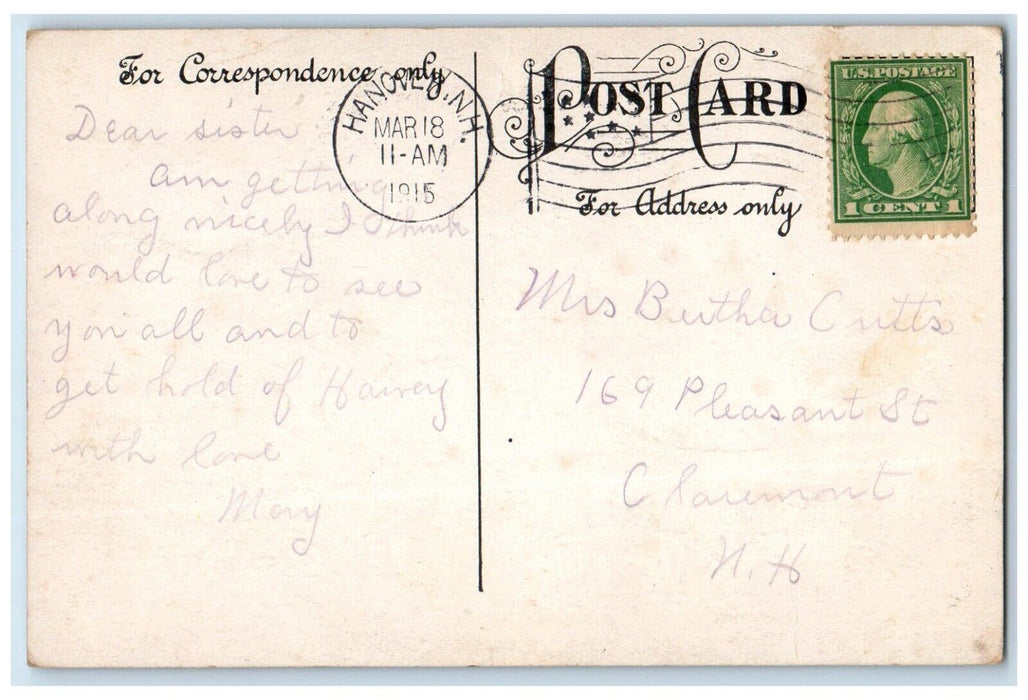 For Correspondence only
Dear sister
am getting
along nicely I think
would love to see
you all and to
get hold of Harvey
with love
May
HANOVER, N.H.
MAR 18
11-AM
1915
POST CARD
For Address only
U.S. POSTAGE
1 CENT 1
Mrs Bertha Cutts
169 Pleasant St
Claremont
N.H